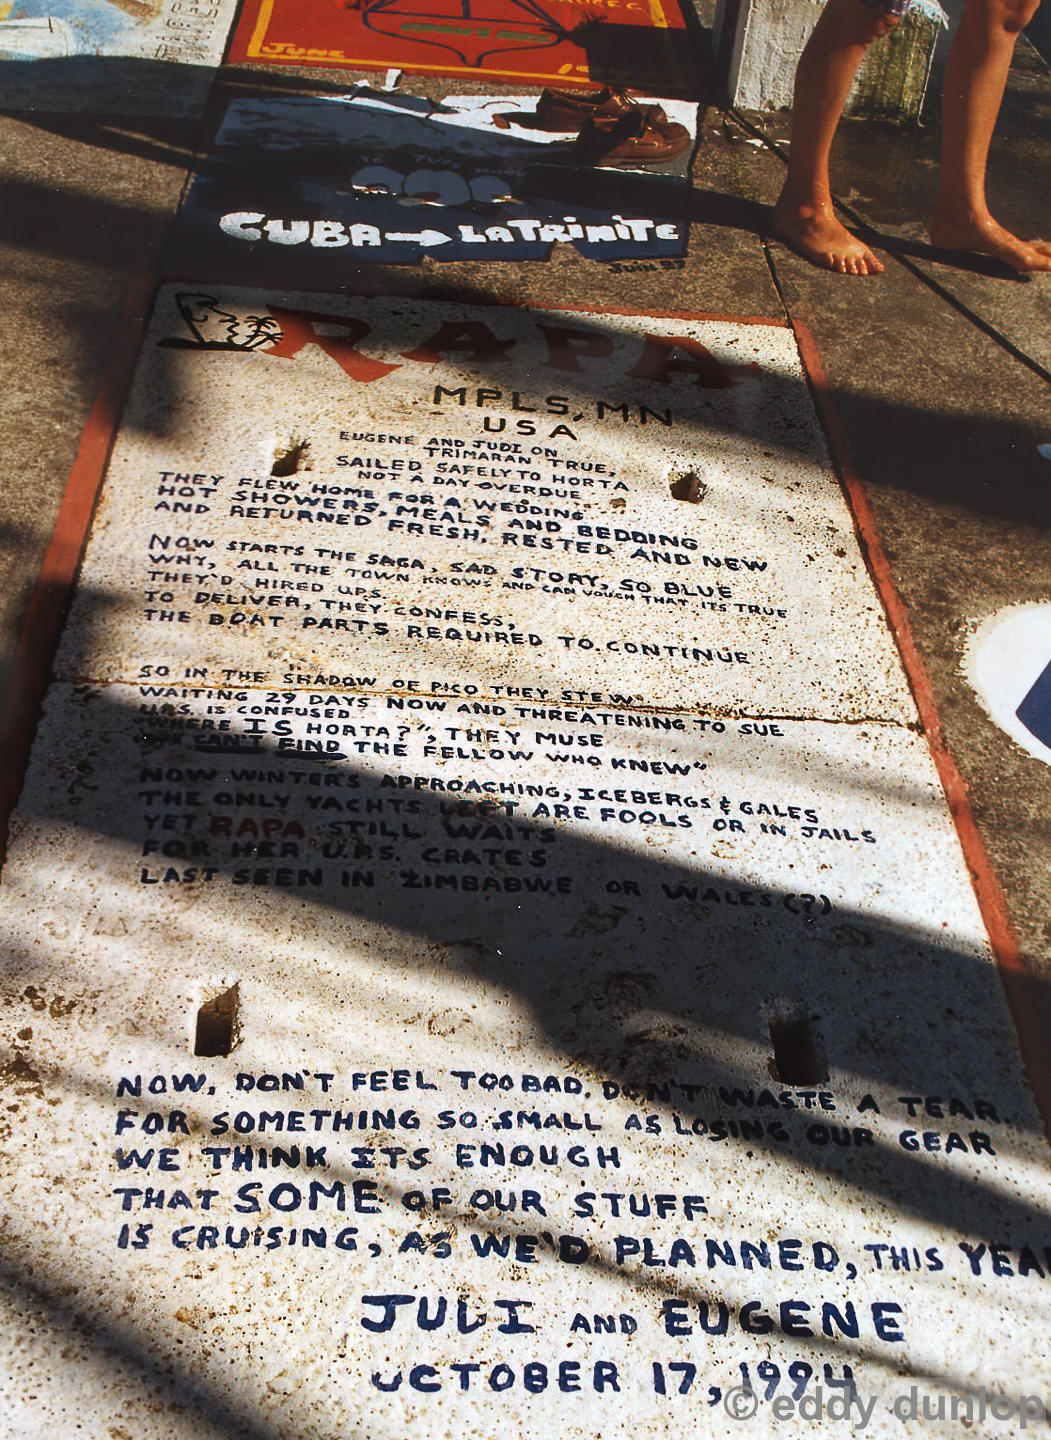 JUNE
CUBA → LATRINITE
JUIN 97
RAPA
MPLS, MN
USA
EUGENE AND JUDI ON
TRIMARAN TRUE,
SAILED SAFELY TO HORTA
NOT A DAY OVERDUE
THEY FLEW HOME FOR A WEDDING
HOT SHOWERS, MEALS AND BEDDING
AND RETURNED FRESH, RESTED AND NEW
NOW STARTS THE SAGA, SAD STORY, SO BLUE
WHY, ALL THE TOWN KNOWS AND CAN VOUCH THAT ITS TRUE
THEY'D HIRED U.P.S.
TO DELIVER, THEY CONFESS,
THE BOAT PARTS REQUIRED TO CONTINUE
SO IN THE SHADOW OF PICO THEY STEW
WAITING 29 DAYS NOW AND THREATENING TO SUE
U.P.S. IS CONFUSED
"WHERE IS HORTA?", THEY MUSE
CAN'T FIND THE FELLOW WHO KNEW"
NOW WINTER'S APPROACHING, ICEBERGS & GALES
THE ONLY YACHTS LEFT ARE FOOLS OR IN JAILS
YET RAPA STILL WAITS
FOR HER U.P.S. CRATES
LAST SEEN IN ZIMBABWE OR WALES (?)
NOW, DON'T FEEL TOO BAD, DON'T WASTE A TEAR..
FOR SOMETHING SO SMALL AS LOSING OUR GEAR
WE THINK ITS ENOUGH
THAT SOME OF OUR STUFF
IS CRUISING, AS WE'D PLANNED, THIS YEA
JUDI AND EUGENE
OCTOBER 17, 1994
© eddy dunlop